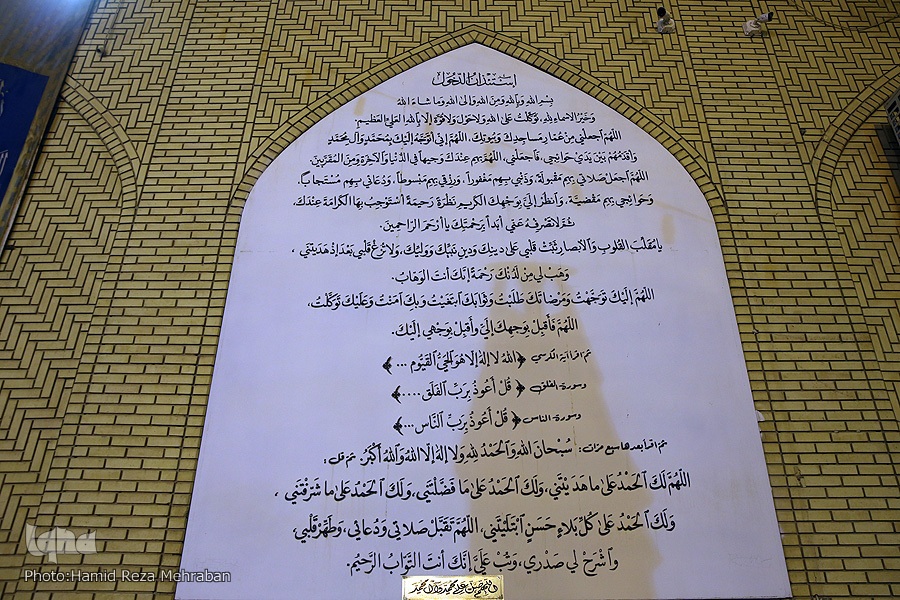 اِسْتِئْذانُ الدُّخُول
بِسْمِ اللهِ وَبِاللهِ وَمِنَ اللهِ وَإِلَى اللهِ وَما شاءَ اللهُ
وَخَيْرُ الاَسْماءِ لِلّٰهِ، تَوَكَّلْتُ عَلَى اللهِ وَلا حَوْلَ وَلا قُوَّةَ إِلّا بِاللهِ العَلِيِّ العَظيمِ.
اللّهُمَّ اجْعَلْني مِنْ عُمّارِ مَساجِدِكَ وَبُيُوتِكَ، اللّهُمَّ إِنّي اَتَوَجَّهُ إِلَيْكَ بِمُحَمَّدٍ وَآلِ مُحَمَّدٍ
وَأُقَدِّمُهُمْ بَيْنَ يَدَيْ حَوائِجي، فَاجْعَلْني، اللّهُمَّ بِهِمْ عِنْدَكَ وَجيهاً فِي الدُّنْيا وَالآخِرَةِ وَمِنَ المُقَرَّبينَ.
اللّهُمَّ اجْعَلْ صَلاتي بِهِمْ مَقْبُولَةً، وَذَنْبي بِهِمْ مَغْفُوراً، وَرِزْقي بِهِمْ مَبْسُوطاً، وَدُعائي بِهِمْ مُسْتَجاباً.
وَحَوائِجي بِهِمْ مَقْضِيَّةً، وَانْظُرْ إِلَيَّ بِوَجْهِكَ الكَريمِ نَظْرَةً رَحيمَةً أَسْتَوْجِبُ بِهَا الكَرامَةَ عِنْدَكَ،
ثُمَّ لا تَصْرِفْهُ عَنّي أَبَداً بِرَحْمَتِكَ يا أَرْحَمَ الرّاحِمينَ.
يا مُقَلِّبَ القُلُوبِ وَالاَبْصارِ ثَبِّتْ قَلْبي عَلى دينِكَ وَدينِ نَبِيِّكَ وَوَلِيِّكَ، وَلا تُزِغْ قَلْبي بَعْدَ إِذْ هَدَيْتَني،
وَهَبْ لي مِنْ لَدُنْكَ رَحْمَةً إِنَّكَ أَنْتَ الوَهّابُ.
اللّهُمَّ إِلَيْكَ تَوَجَّهْتُ وَمَرْضاتَكَ طَلَبْتُ وَثَوابَكَ ابْتَغَيْتُ وَبِكَ آمَنْتُ وَعَلَيْكَ تَوَكَّلْتُ،
اللّهُمَّ فَأَقْبِلْ بِوَجْهِكَ إِلَيَّ وَأَقْبِلْ بِوَجْهي إِلَيْكَ.
ثم اقرأ آية الكرسي ﴿اللهُ لا إِلهَ إِلّا هُوَ الحَيُّ القَيُّومُ ...﴾
وسورة الفلق ﴿قُلْ أَعُوذُ بِرَبِّ الفَلَقِ ....﴾
وسورة الناس ﴿قُلْ أَعُوذُ بِرَبِّ النَّاسِ ...﴾
ثم اقرأ بعدها سبع مرات: سُبْحانَ اللهِ وَالحَمْدُ لِلّٰهِ وَلا إِلهَ إِلّا اللهُ وَاللهُ أَكْبَرُ. ثم قل:
اللّهُمَّ لَكَ الحَمْدُ عَلى ما هَدَيْتَني، وَلَكَ الحَمْدُ عَلى ما فَضَّلْتَني، وَلَكَ الحَمْدُ عَلى ما شَرَّفْتَني،
وَلَكَ الحَمْدُ عَلى كُلِّ بَلاءٍ حَسَنٍ ابْتَلَيْتَني، اللّهُمَّ تَقَبَّلْ صَلاتي وَدُعائي، وَطَهِّرْ قَلْبي،
وَاشْرَحْ لي صَدْري، وَتُبْ عَلَيَّ إِنَّكَ أَنْتَ التَّوّابُ الرَّحيمُ.
iqna
Photo:Hamid Reza Mehraban